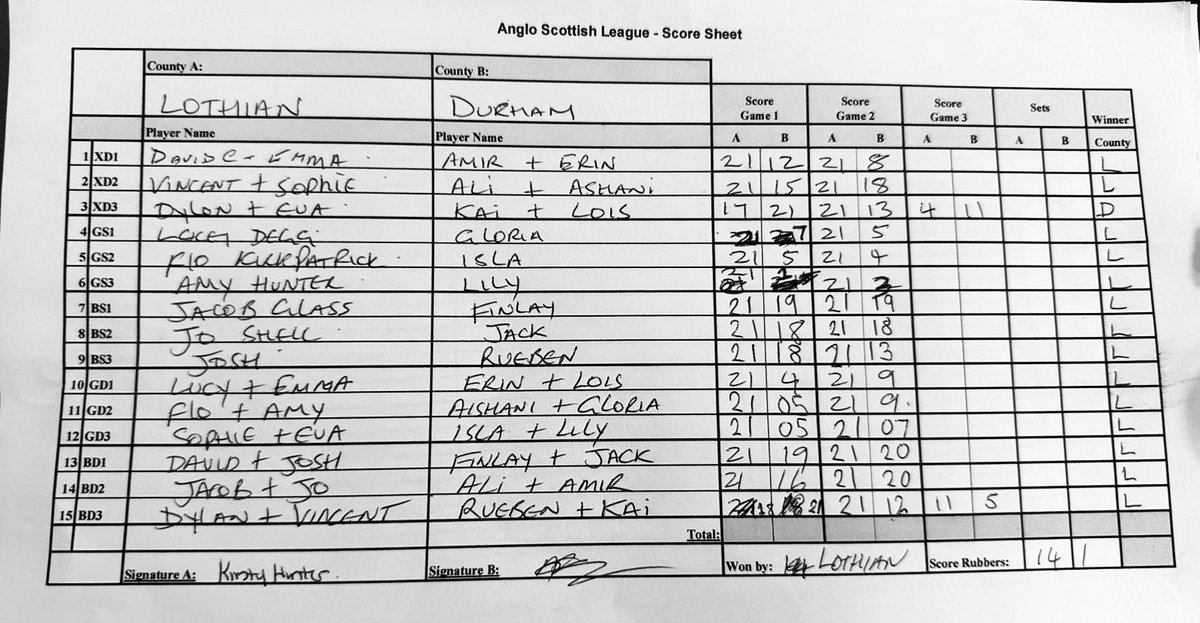 Anglo Scottish League - Score Sheet
County A: County B:
LOTHIAN DURHAM
Score Game 1 Score Game 2 Score Game 3 Sets Winner
Player Name Player Name A B A B A B A B County
1 XD1 DAVID C - EMMA AMIR + ERIN 21 12 21 8 L
2 XD2 VINCENT + SOPHIE ALI + ASHANI 21 15 21 18 L
3 XD3 DYLON + EVA KAI + LOIS 17 21 21 13 4 11 D
4 GS1 GLORIA 21 7 21 5 L
5 GS2 FLO KIRKPATRICK ISLA 21 5 21 4 L
6 GS3 AMY HUNTER LILY 21 21 L
7 BS1 JACOB GLASS FINLAY 21 19 21 19 L
8 BS2 JO SHELL JACK 21 18 21 18 L
9 BS3 JOSH RUEBEN 21 18 21 13 L
10 GD1 LUCY + EMMA ERIN + LOIS 21 4 21 9 L
11 GD2 FLO + AMY AISHANI + GLORIA 21 05 21 9. L
12 GD3 SOPHIE + EVA ISLA + LILY 21 05 21 07 L
13 BD1 DAVID + JOSH FINLAY + JACK 21 19 21 20 L
14 BD2 JACOB + JO ALI + AMIR 21 16 21 20 L
15 BD3 DYLAN + VINCENT RUEBEN + KAI 18 21 21 12 11 5 L
Total:
Signature A: Kirsty Hunter. Signature B: Won by: LOTHIAN Score Rubbers: 14 1